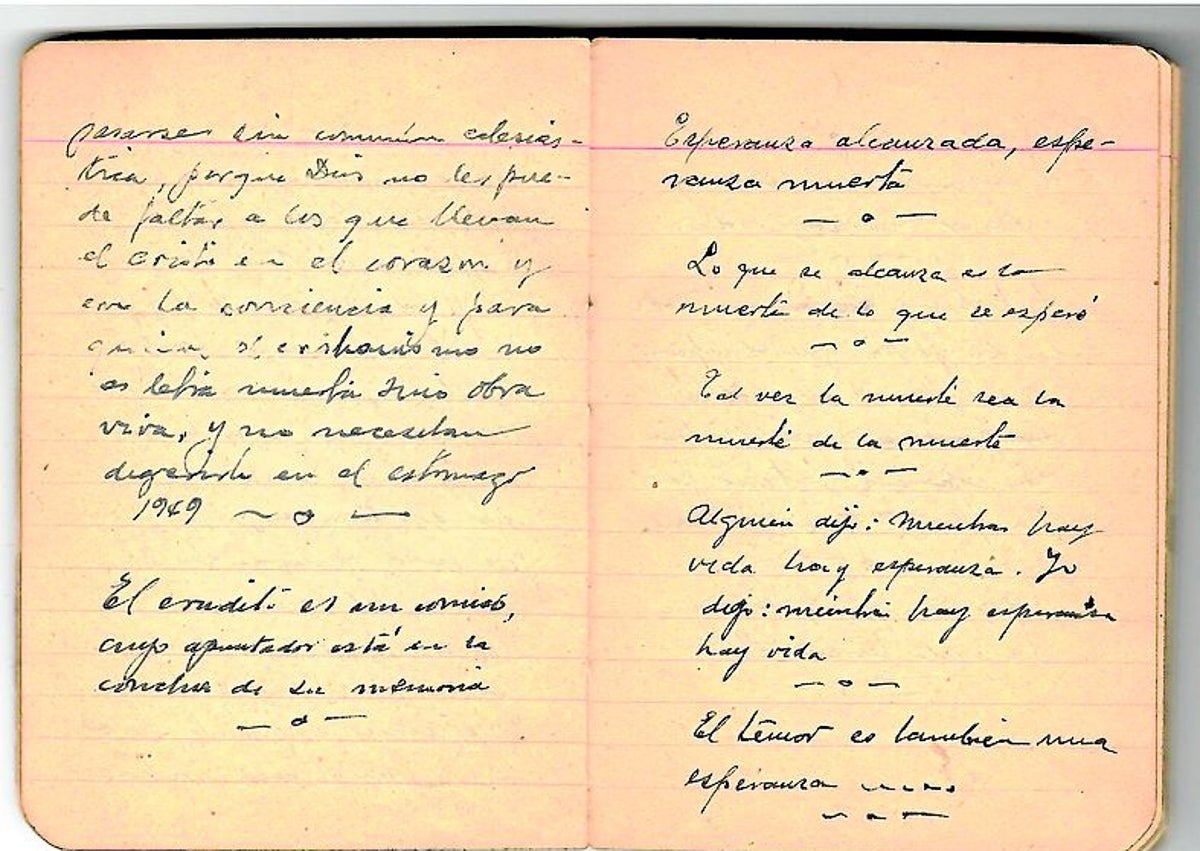 pasarse sin comunión eclesiás-
tica, porque Dios no les pue-
de faltar a los que llevan
el Cristo en el corazón y
en la conciencia y para
quienes el cristianismo no
es letra muerta sino obra
viva, y no necesitan
digerirlo en el estomago
1949
El erudito es un comico,
cuyo apuntador está en la
concha de su memoria
Esperanza alcanzada, espe-
ranza muerta
Lo que se alcanza es la
muerte de lo que se esperó
Tal vez la muerte sea la
muerte de la muerte
Alguien dijo: mientras hay
vida hay esperanza. Yo
digo: mientras hay esperanza
hay vida
El temor es tambien una
esperanza